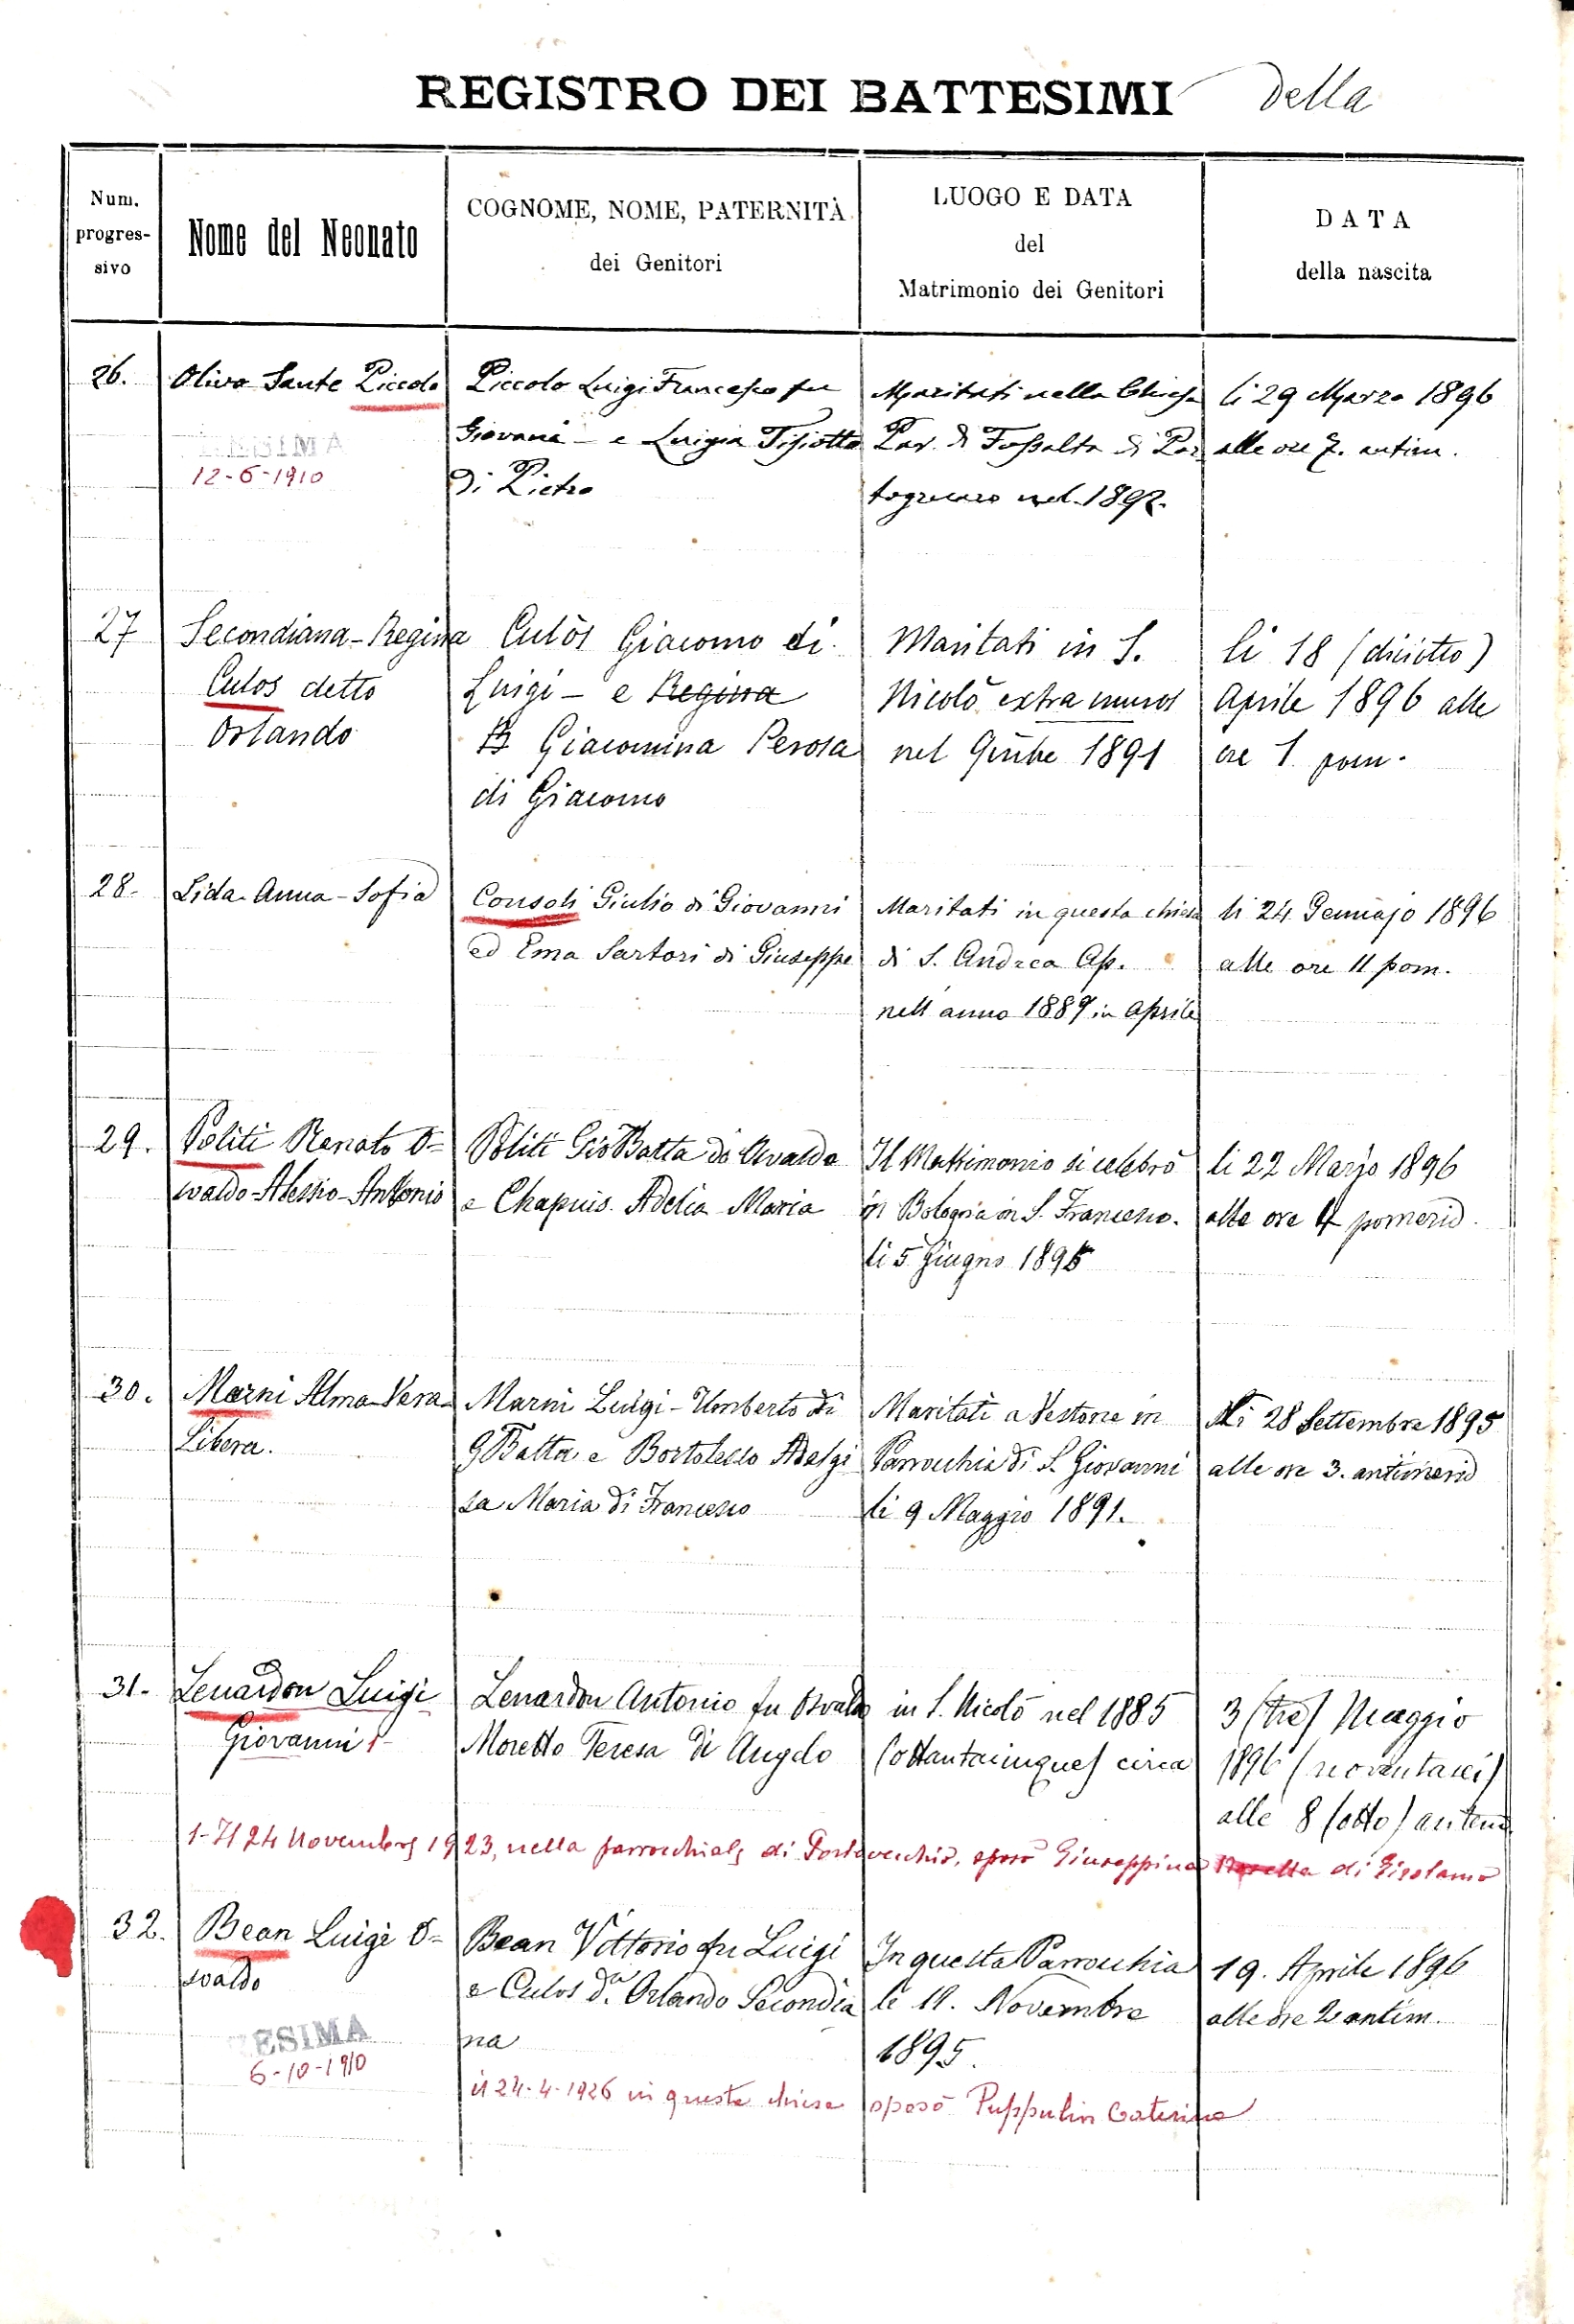 REGISTRO DEI BATTESIMI della
Num.
progres-
sivo
Nome del Neonato
COGNOME, NOME, PATERNITÀ
dei Genitori
LUOGO E DATA
del
Matrimonio dei Genitori
DATA
della nascita
26.
Oliva Sante Piccolo
12-6-1910
Piccolo Luigi Francesco fu
Giovani - e Luigia Tisiotto
Di Pietro
Maritati nella Chiesa
Par. di Fossalta di Por
togruaro nel 1892.
li 29 Marzo 1896
alle ore 7. antim.
27
Secondiana-Regina
Culos detto
Orlando
Culòs Giacomo di
Luigi - e Regina
Giacomina Perosa
di Giacomo
Maritati in S.
Nicolò extra muros
nel 1891
li 18 (diciotto)
Aprile 1896 alle
ore 1 pom.
28.
Lida-Anna-Sofia
Consoli Giulio di Giovanni
ed Ema Sartori di Giuseppe
Maritati in questa chiesa
di S. Andrea Ap.
nell anno 1889 in Aprile
li 24 Gennajo 1896
alle ore 11 pom.
29.
Politi Renato O=
svaldo-Alessio-Antonio
Politi Gio Batta di Osvaldo
e Chapuis Adelia Maria
Il Matrimonio si celebrò
in Bologna in S. Francesco.
li 5 Giugno 1895
li 22 Marzo 1896
alle ore 4 pomerid.
30.
Marni Alma-Vera-
Libera.
Marni Luigi-Umberto di
GBatta e Bortolussi Adalgi
sa Maria di Francesco
Maritati a Vestone in
Parrocchia di S. Giovanni
li 9 Maggio 1891.
li 28 Settembre 1895
alle ore 3. antimerid
31.
Lenardon Luigi
Giovanni 1-
Lenardon Antonio fu Osvaldo
Moretto Teresa di Angelo
in S. Nicolò nel 1885
(ottantacinque) circa
3 (tre) Maggio
1896 (novantasei)
alle 8 (otto) antem
1-Il 24 Novembre 1923, nella parrocchiale di Portovecchio, sposò Giuseppina di Girolamo
32.
Bean Luigi O=
svaldo
ESIMA
6-10-1910
Bean Vittorio fu Luigi
e Culos d.a Orlando Secondia
na
In questa Parrocchia
li 11. Novembre
1895.
19. Aprile 1896
alle ore 2 antim.
il 24-4-1926 in questa chiesa sposò Puppulin Caterina